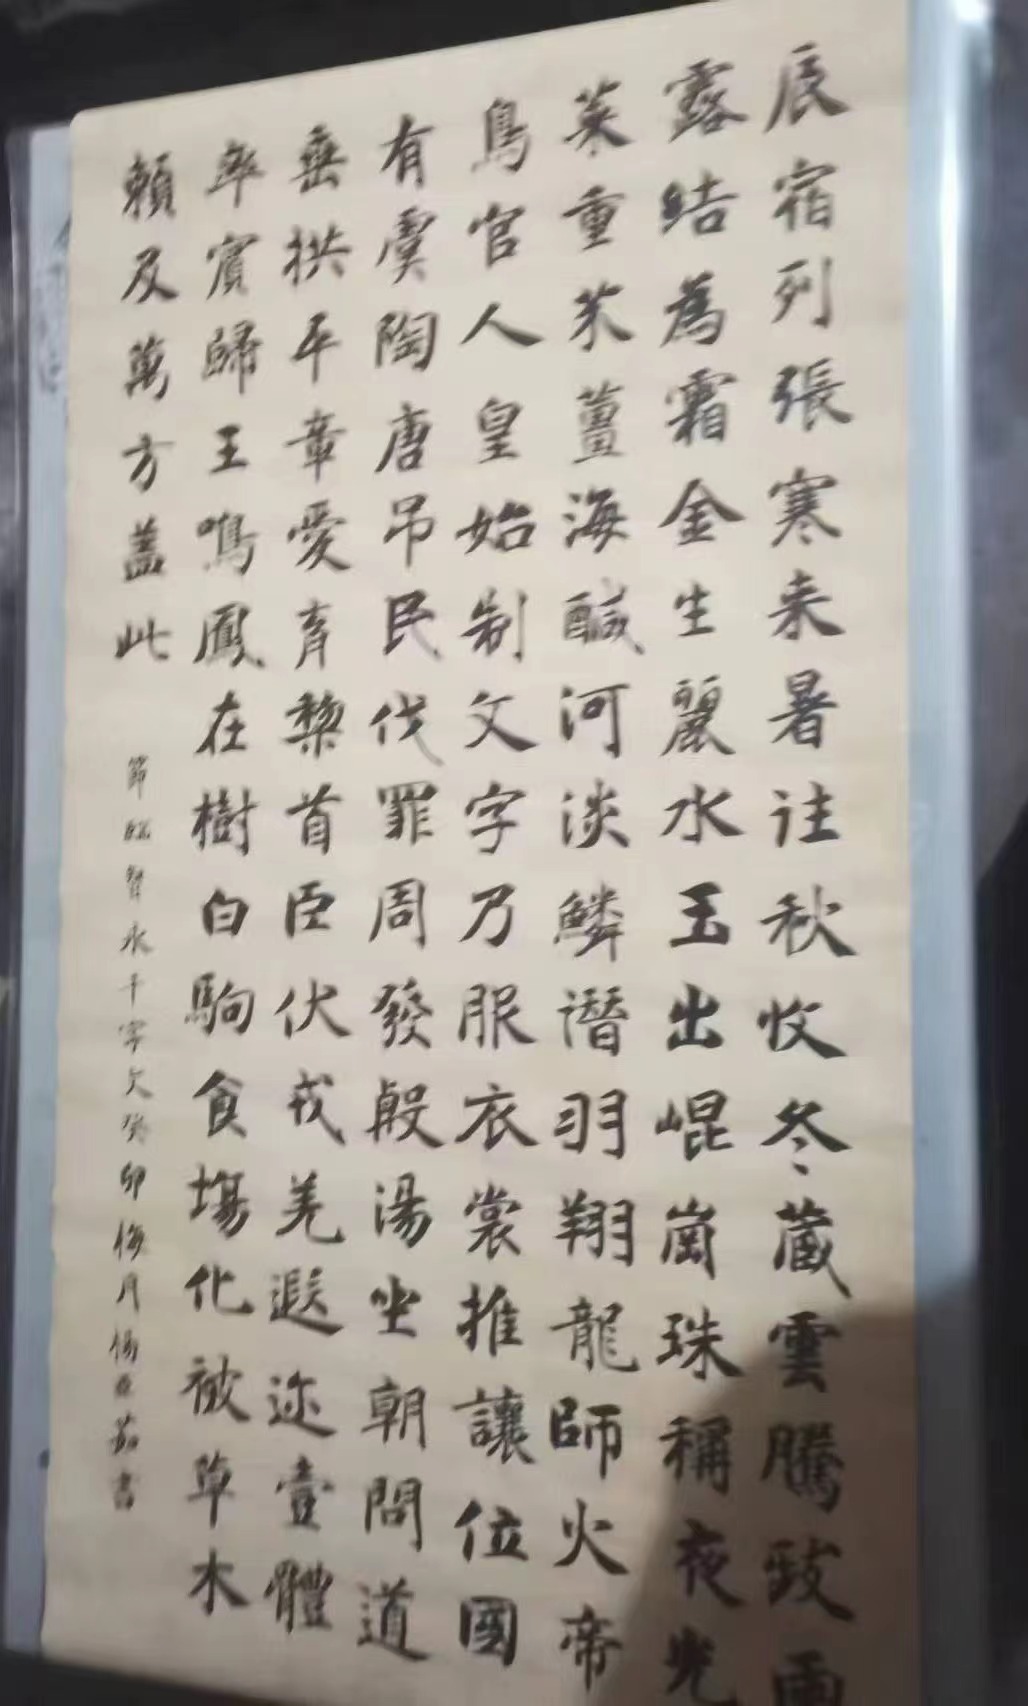 辰宿列張寒来暑往秋收冬蔵雲騰致雨
露結為霜金生麗水玉出崐崗珠稱夜光
菜重芥薑海鹹河淡鱗潛羽翔龍師火帝
鳥官人皇始制文字乃服衣裳推讓位國
有虞陶唐吊民伐罪周發殷湯坐朝問道
垂拱平章愛育黎首臣伏戎羌遐迩壹體
率賓歸王鳴鳳在樹白駒食場化被草木
賴及萬方盖此
節臨智永千字文癸卯梅月楊亚茹書